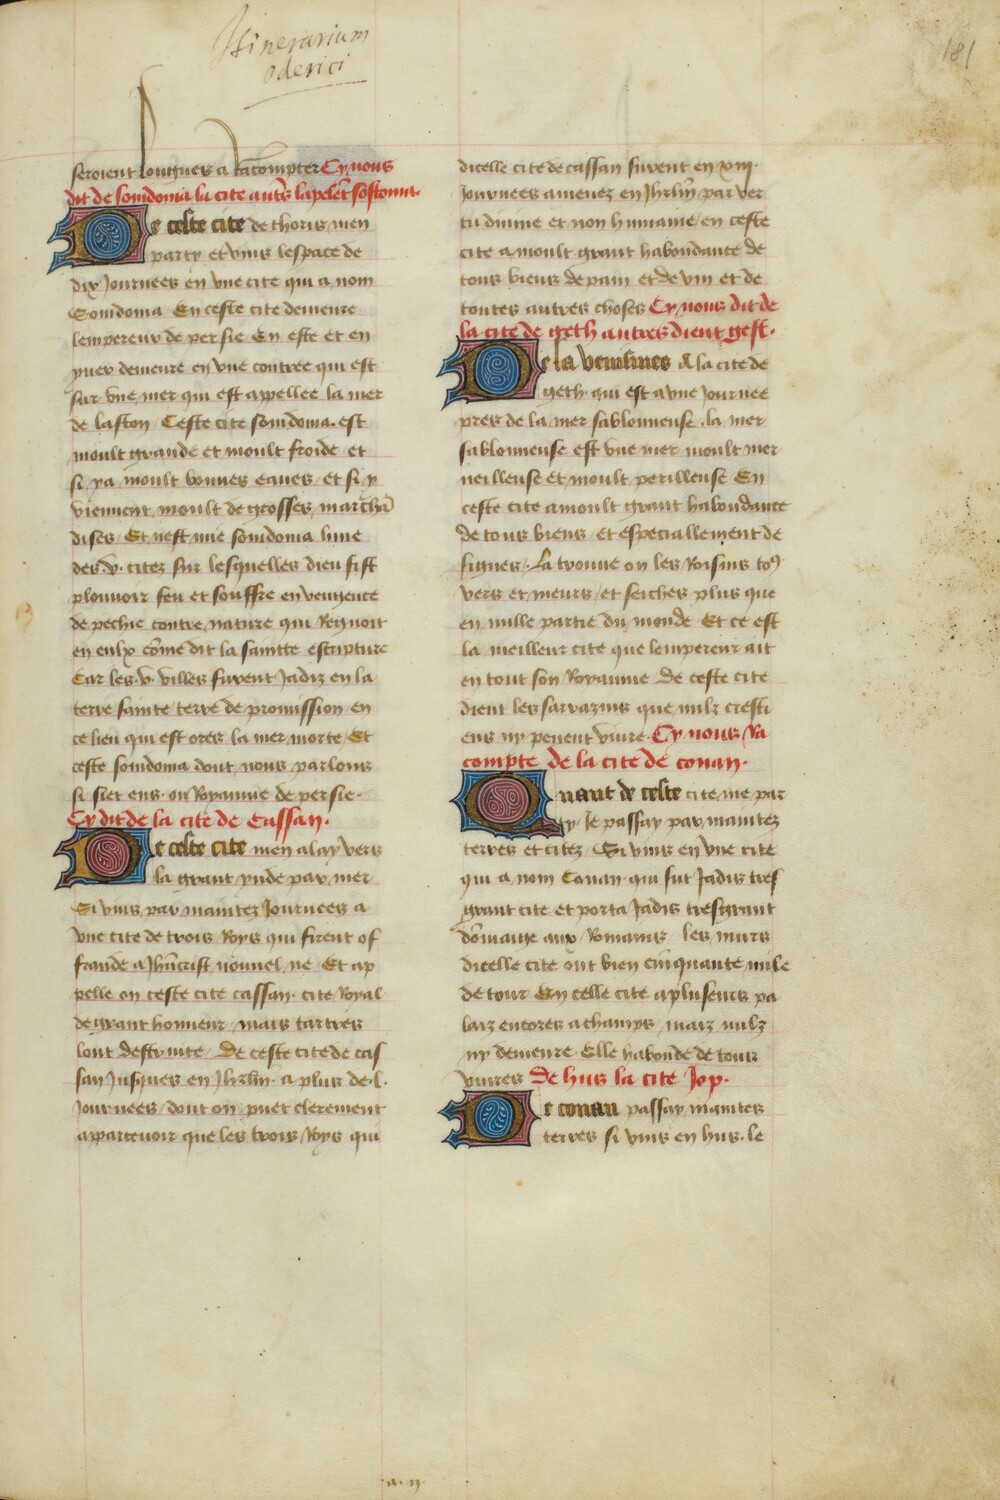 Itinerarium
Oderici
181
seroient longues a racompter Cy nous
dit de somdoma la cite autrs lapelēt sostoma.
De ceste cite de thoris men
party et vins lespace de
dix Journees en vne cite qui a nom
Somdoma En ceste cite demeure
lempereur de persie En este et en
yuer demeure en vne contree qui est
sur vne mer qui est appellee la mer
de baston Ceste cite somdoma est
moult grande et moult froide et
si y a moult bonnes eaues et si y
viennent moult de grosses marchā
dises Et nest mie somdoma lune
des .v. citez sur lesquelles dieu fist
plouuoir feu et souffre en vengence
de pechie contre nature qui Regnoit
en eulx cōme dit la saintte escripture
Car les .v. villes furent Jadiz en la
terre sainte terre de promission en
ce lieu qui est ores la mer morte Et
ceste somdoma dont nous parlons
si siet ens ou Royaume de persie.
Cy dit de la cite de Cassan.
De ceste cite men alay vers
la grant ynde par mer
Si vins par maintez Journees a
vne cite de trois Roys qui firent of
frande a Jhūcrist nouuel ne Et ap
pelle on ceste cite cassan. cite Royal
de grant honneur mais tartres
lont destruite De ceste cite de cas
san Jusques en Jhrlm̄ a plus de .l.
Journees dont on puet clerement
apartenoir que les trois Roys qui
dicelle cite de cassan furent en xiij.
Journees amenez en Jhrlm̄ par ver
tu diuine et non humaine en ceste
cite a moult grant habondance de
tous biens de pain et de vin et de
toutes autres choses Cy nous dit de
la cite de geth autres dient gest.
De la venismes A la cite de
geth qui est a vne Journee
pres de la mer sablonneuse. la mer
sablonneuse est vne mer moult mer
ueilleuse et moult perilleuse En
ceste cite a moult grant habondance
de tous biens et especiallement de
figues. La trouue on les Roisins toꝰ
vers et meurs et seiches plus que
en nulle partie du monde Et ce est
la meilleur cite que lempereur ait
en tout son Royaume De ceste cite
dient les sarrazins que nulz cresti
ens ny peuent viure. Cy nous Ra
compte de la cite de conan.
Quant de ceste cite me par
ty. Je passay par maintez
terres et citez Si vins en vne cite
qui a nom Conan. qui fut Jadis tres
grant cite et porta Jadis tresgrant
dōmaige aux Romains les murs
dicelle cite ont bien cinquante mile
de tour En celle cite a plusieurs pa
laiz encores a champs maiz nulz
ny demeure Elle habonde de tous
viures De hus la cite Jop.
De conan passay maintes
terres si vins en hus. le
a. ij.